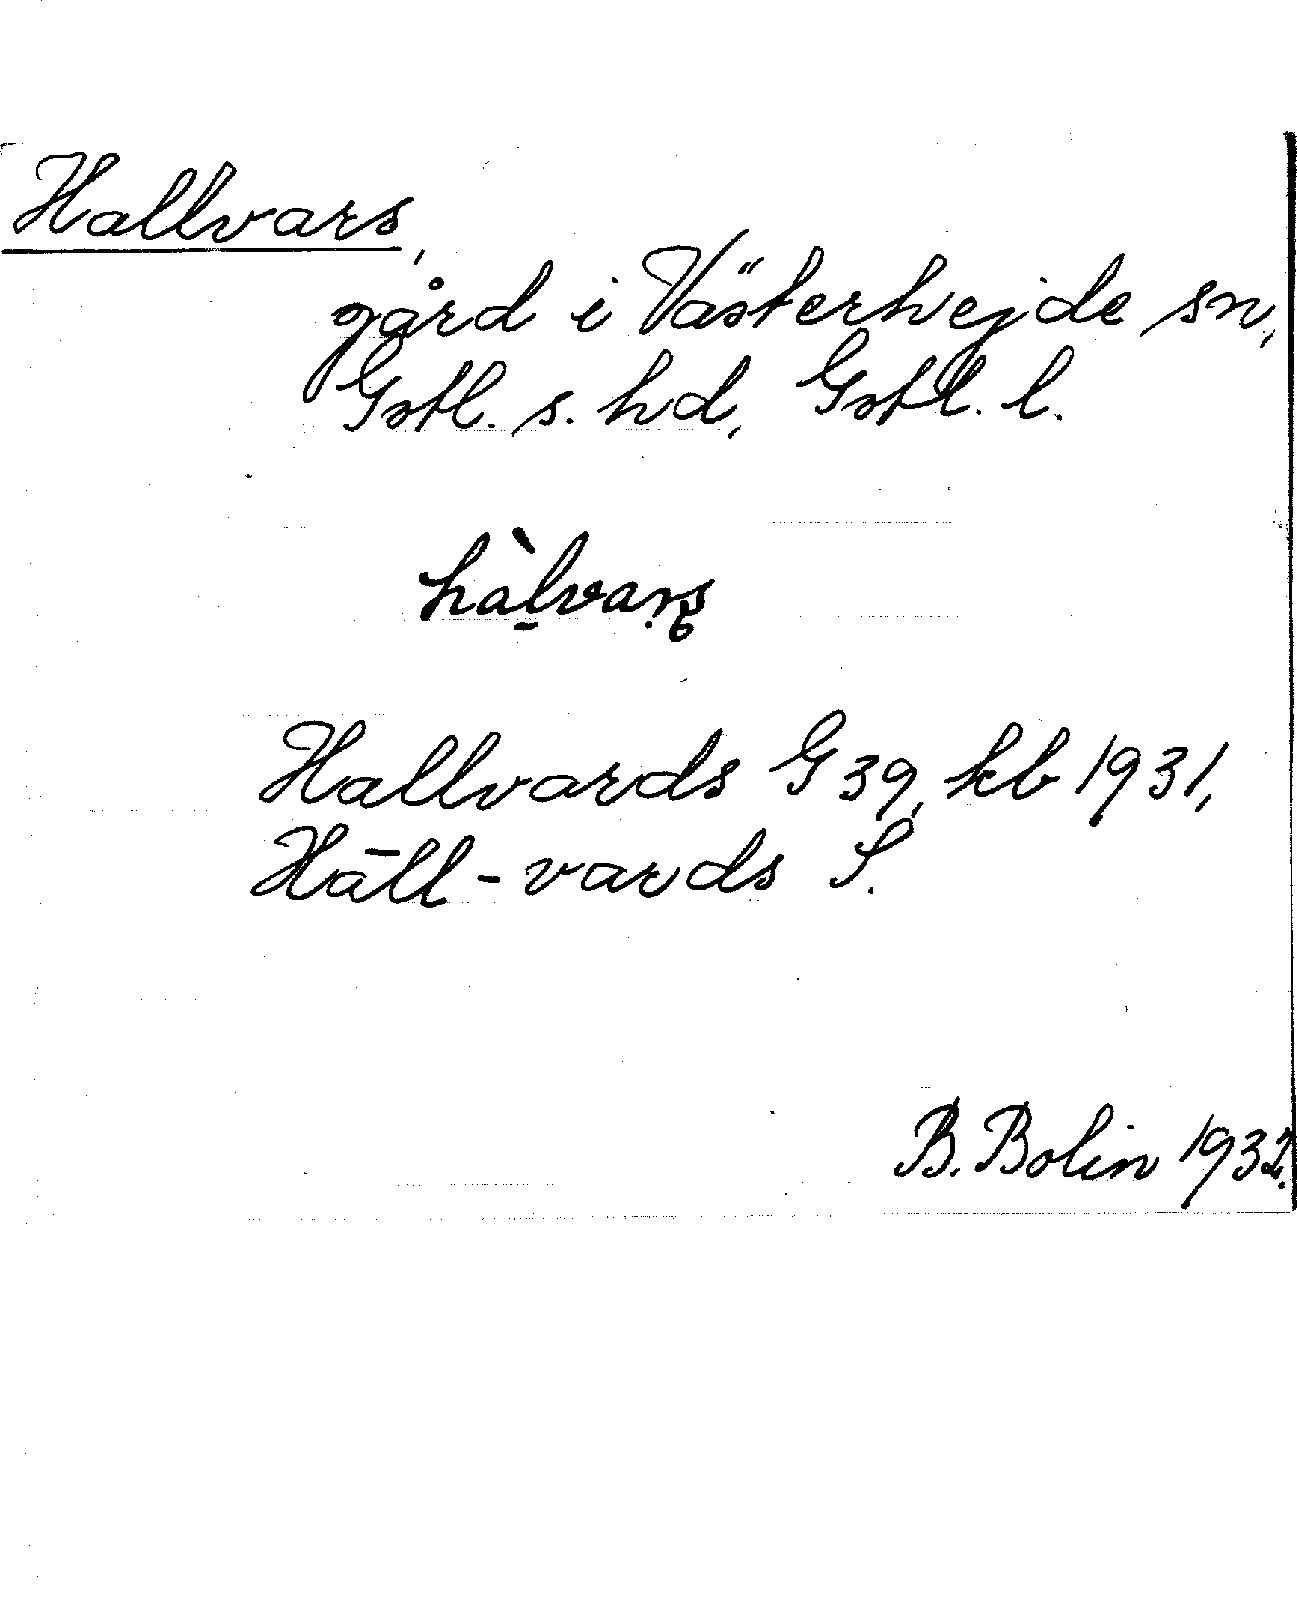 Hallvars,
gård i Västerhejde sn,
Gotl. s. hd, Gotl. l.
hàl̠vaṛs
Hallvards G 39, kb 1931,
Hāll-vards S.
B. Bolin 1932.